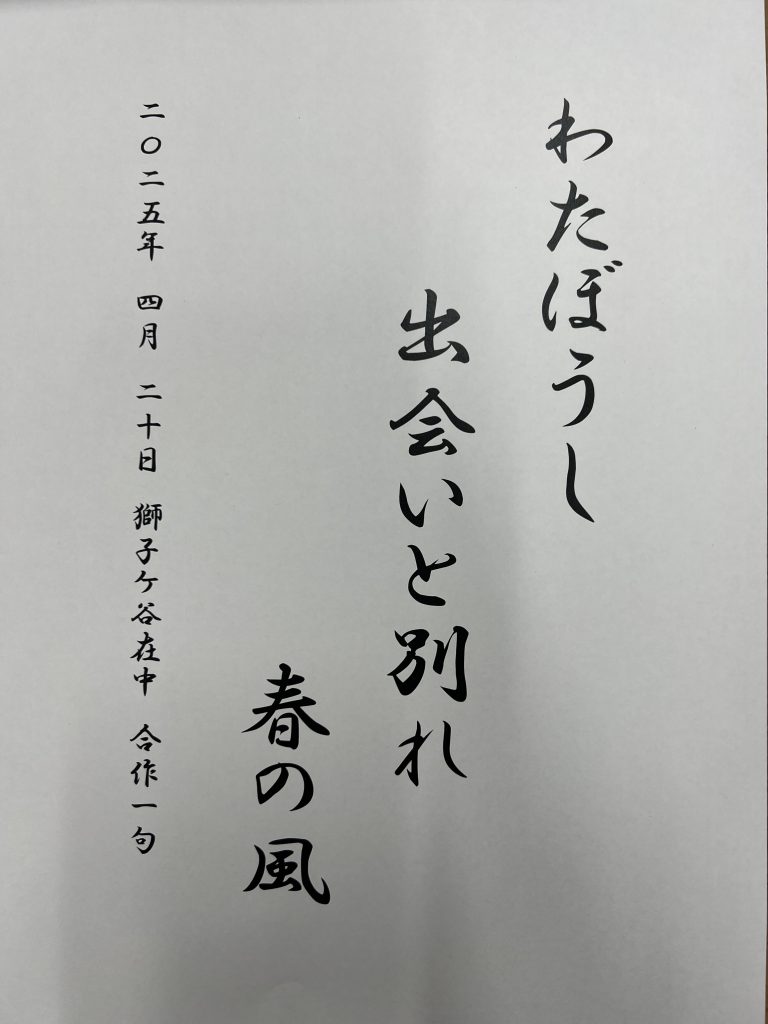 わたぼうし
出会いと別れ
春の風
二〇二五年 四月 二十日 獅子ケ谷在中 合作一句